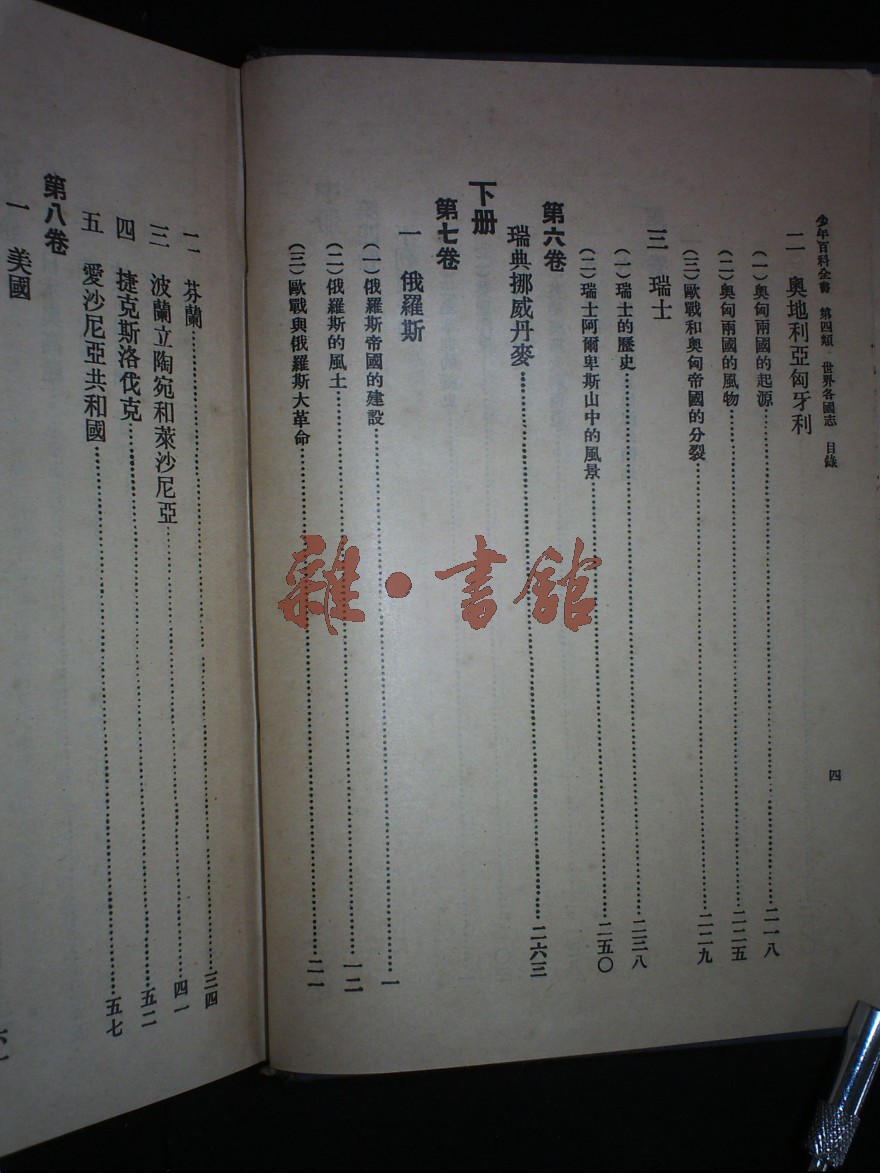 少年百科全書　第四類　世界各國志　目錄
四
二　奧地利亞匈牙利
（一）奧匈兩國的起源……二一八
（二）奧匈兩國的風物……二二五
（三）歐戰和奧匈帝國的分裂……二二九
三　瑞士
（一）瑞士的歷史……二三八
（二）瑞士阿爾卑斯山中的風景……二五〇
第六卷
瑞典挪威丹麥……二六三
下册
第七卷
一　俄羅斯
（一）俄羅斯帝國的建設……一
（二）俄羅斯的風土……一二
（三）歐戰與俄羅斯大革命……二一
二　芬蘭……三四
三　波蘭立陶宛和萊沙尼亞……四一
四　捷克斯洛伐克……五二
五　愛沙尼亞共和國……五七
第八卷
一　美國
雜·書館